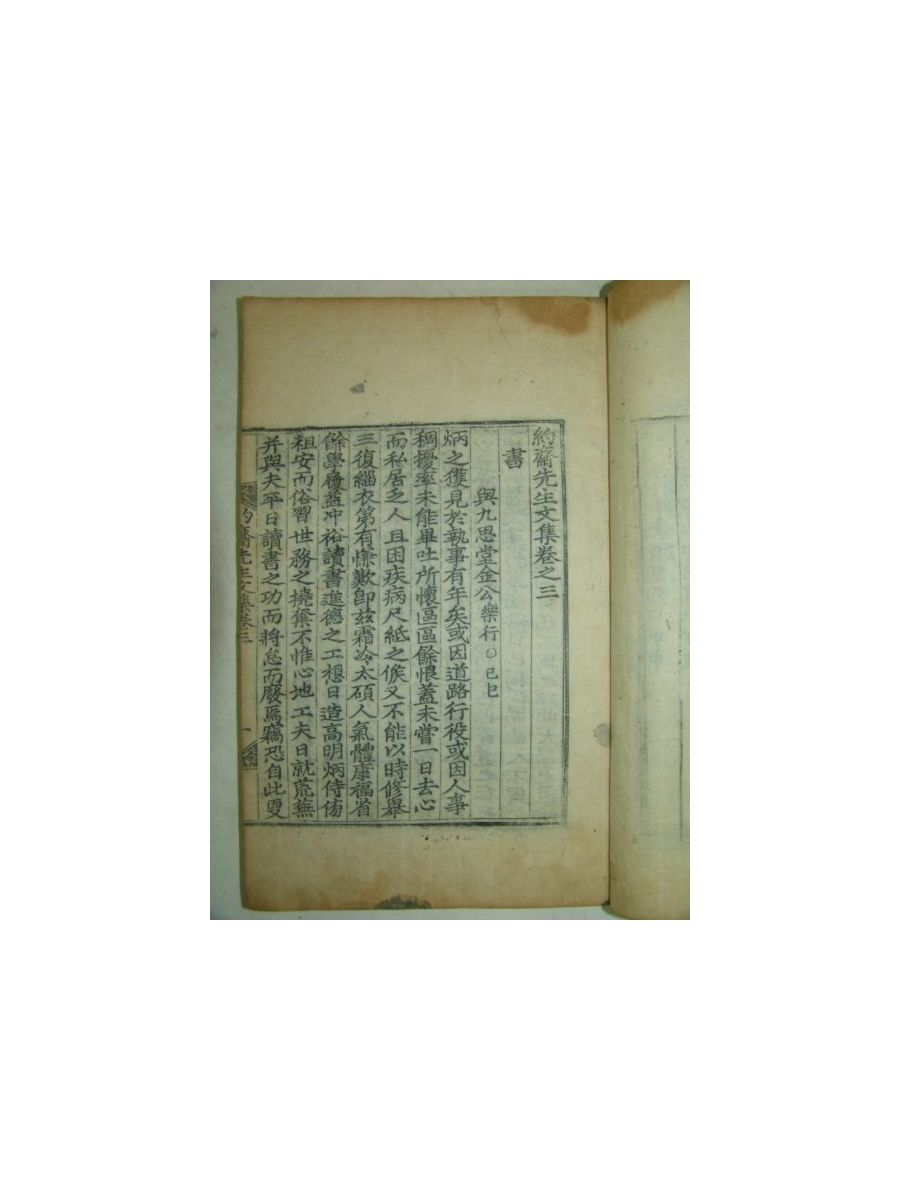 約齋先生文集卷之三
書
與九思堂金公樂行○己巳
炳之獲見於執事有年矣或因道路行役或因人事
稠擾率未能畢吐所懷區區餘恨蓋未嘗一日去心
而私居乏人且困疾病尺紙之候又不能以時修舉
三復緇衣第有慊歎卽玆霜冷太碩人氣體康福省
餘學履益冲裕讀書進德之工想日造高明炳侍傍
粗安而俗習世務之撓奪不惟心地工夫日就荒蕪
并與夫平日讀書之功而將怠而廢焉竊恐自此戛
約齋先生文集卷三
一